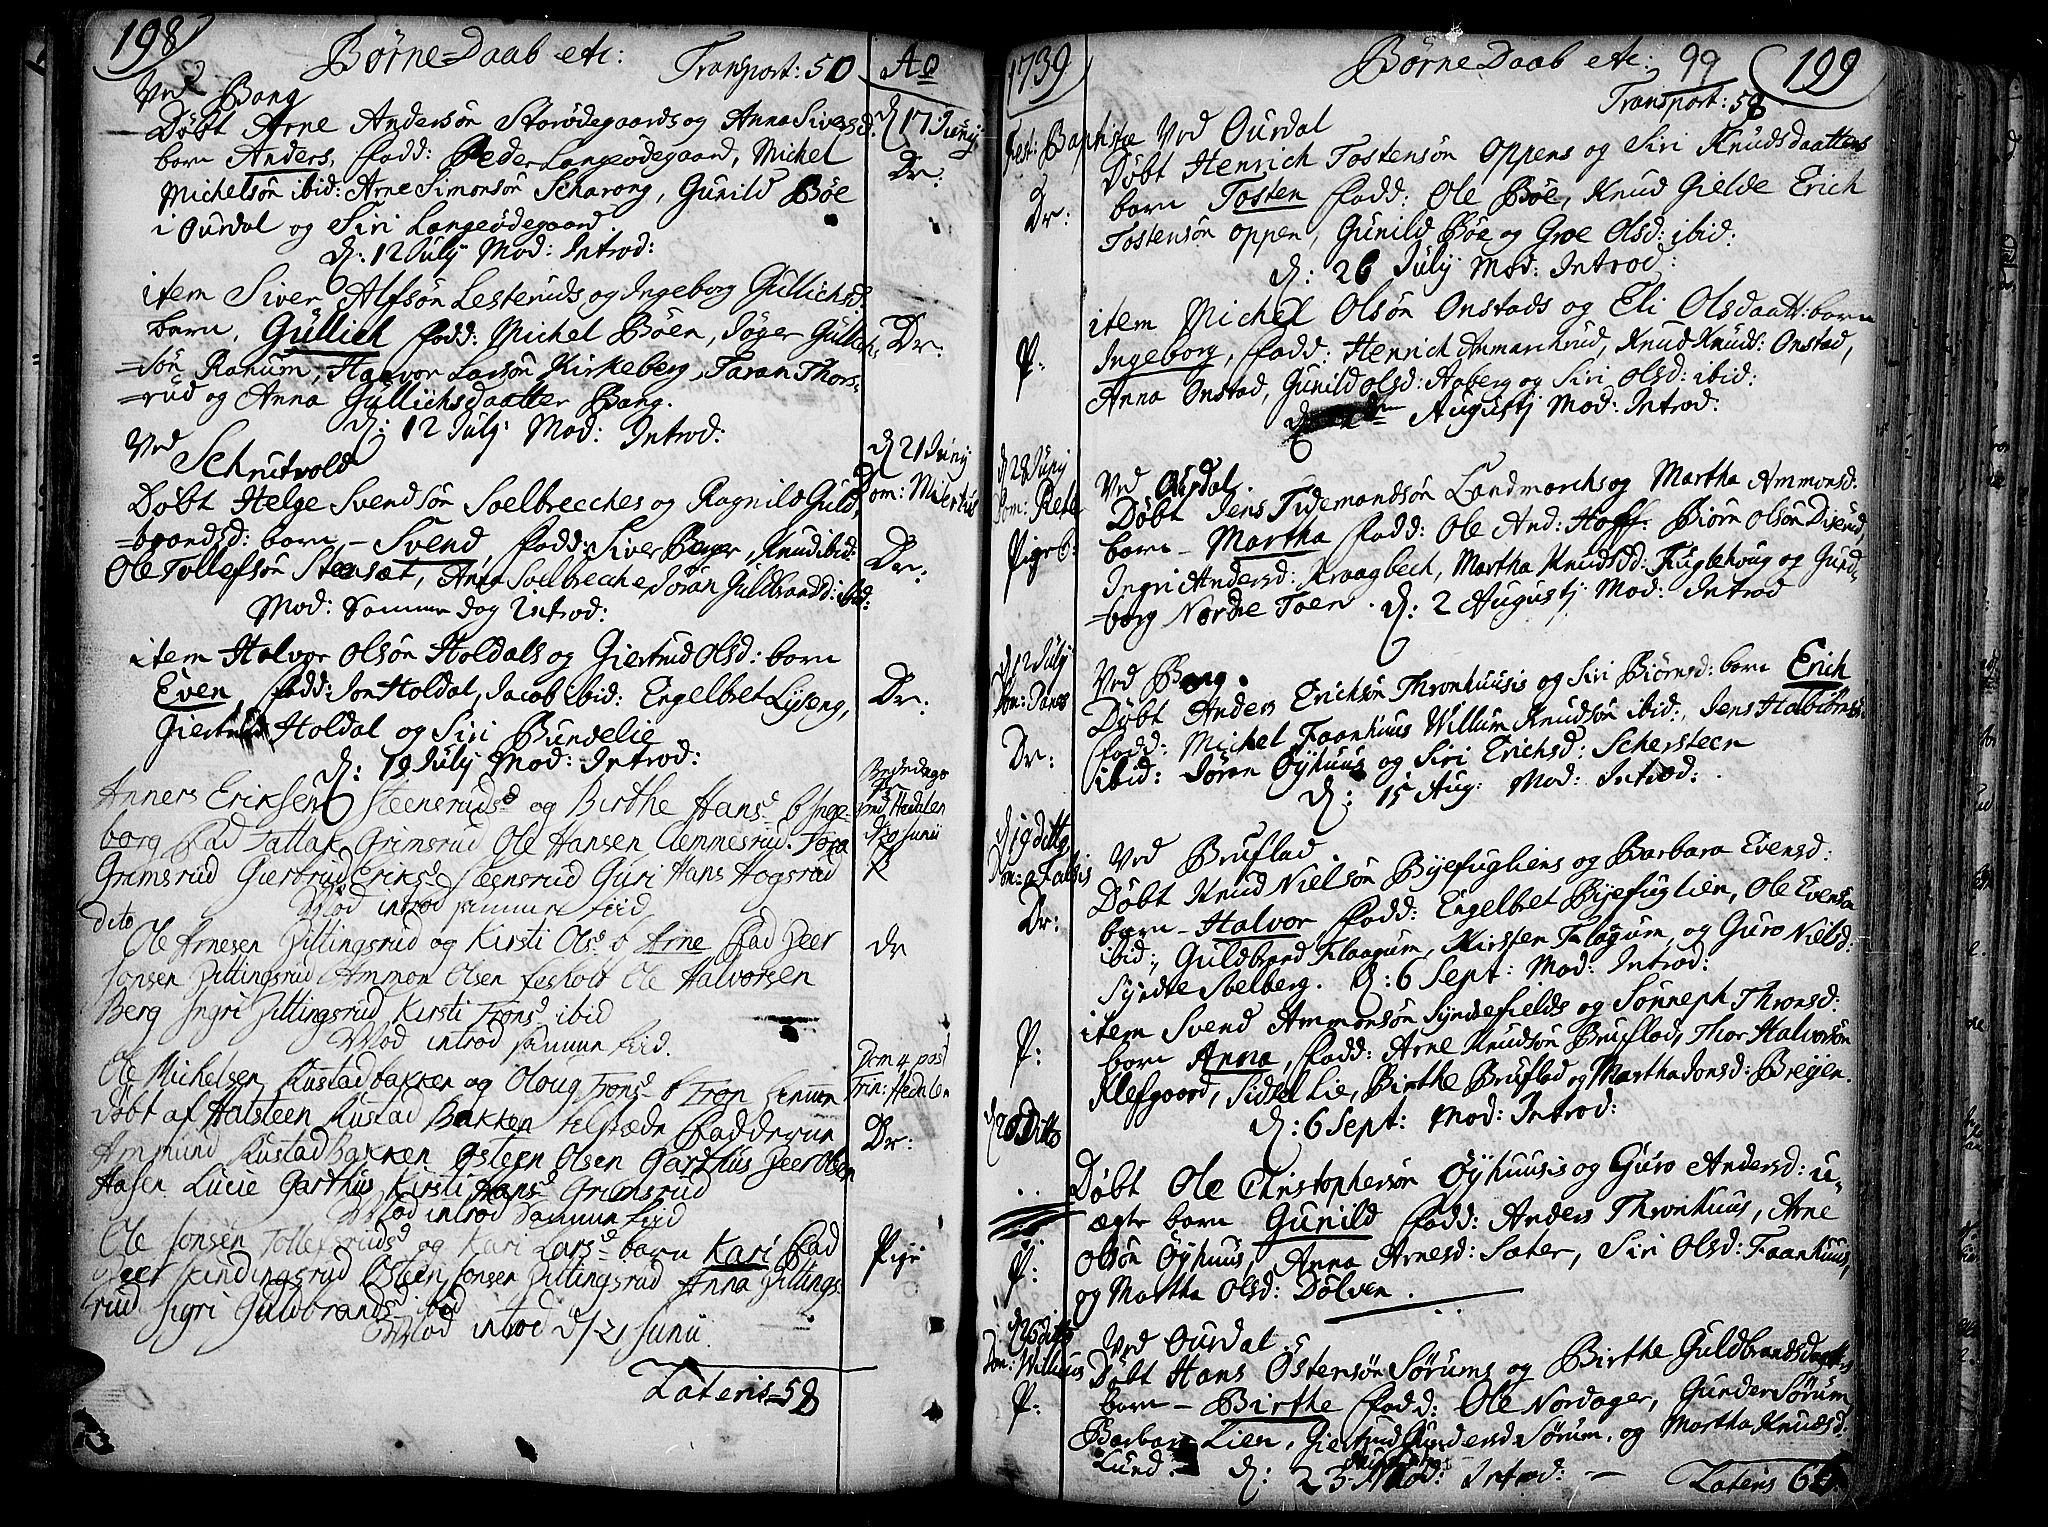 198
Børne-Daab etc: Transport: 50 Ao
Ved Bang
Døbt Arne Andersøn Storødegaards og Anna Siversd: d. 17 Junij
barn Anders, fadd: Peder Langeødegaard, Michel Dr:
Michelsøn ibid: Arne Simonsøn Scharong, Gunild Bøe
i Ourdal og Siri Langeødegaard.
d: 12 July Mod: Introd:
item Siver Alfsøn Lesteruds og Ingeborg Gullichsd:
barn, Gullich fadd: Michel Bøen, Jøger Gullich- Dr:
=søn Ranum, Halvor Larsøn Kirkeberg, Taran Thors-
=rud og Anna Gullichsdaatter Bang.
d: 12 Julj Mod: Introd:
Ved Schrutvold d 21 Junij
Døbt Helge Svendsøn Soelbrecches og Ragnild Guld- Dom: Miseritus
=brandsd: barn - Svend, fadd: Siver Beyer, Knud ibid: Dr:
Ole Tollefsøn Steensæt, Anna Soelbrecche, Jøran Guldbrandsd: ibid:
Mod: Samme dag Introd:
item Halvor Olsøn Holdals og Giertrud Olsd: barn
Even fadd: Jon Holdal, Jacob ibid: Engelbret Lyseng, Dr:
Giertrud Holdal og Siri Bundelie
d: 19 July Mod: Introd:
Anners Eriksen Steensruds og Birthe Hansd b Inge- Bededag
borg fad Tallak Grimsrud Ole Hansen Clemmesrud. Tora ved Hedalen
Grimsrud Giertrud Eriksd Steensrud Guri Hans Hogsrud
Mod introd samme tiid
dito
Ole Arnesen Zittingsrud og Kirsti Olsd b Arne fad Peer dr
Jonsen Zittingsrud Ammon Olsen Ole Halvorsen
Berg Ingri Zittingsrud Kirsti Tronsd ibid
Mod introd samme tiid.
Ole Michelsen Rustadbakken og Oloug Tronsd b Tron hemme Dom 4 post
døbt af Halsteen Rustad Bakken tilstæde fadderne Trin: Hedalen
Ammund Rustad Bakken Østeen Olsen Garthus Peer Olsen Dr:
Hasen Lucie Garthus Kirsti Hansd Grimsrud
Mod introd Samme tiid
Ole Jonsen Tollefsruds og Kari Larsd barn Kari fad Pige
Peer Østeen Jonsen Zittingsrud Anna Zittings-
rud Sigri Guldbrandsd ibid
Mod introd d 21 Junii
Lateris 58
1739 Børne Daab etc: 99 199
Transport: 58
Fest: Baptistæ Ved Ourdal
Døbt Henrich Tostensøn Oppens og Siri Knudsdaatters
Dr: barn Tosten fadd: Ole Bøe, Knud Gielde Erich
Tostensøn oppen, Gunild Bøe og Groe Olsd: ibid:
d: 26 July Mod: Introd:
item Michel Olsøn Onstads og Eli Olsdaatt: barn
P: Ingeborg, fadd: Henrich Anmarchrud, Knud Knuds: Onstad,
Anna Onstad, Gunild Olsd: Aaberg og Siri Olsd: ibid:
Augustj Mod: Introd:
d 28 Junij Ved Ourdal.
Døbt Jens Tidemandsøn Landmarchs og Martha Ammonsd:
Pige b: barn - Martha fadd: Ole And: Hoff: Biørn Olsøn Disend,
Ingri Andersd: Kraagbech, Martha Knudsd: Fuglehoug og Gund-
=borg Nordre Toen. d: 2 Augustj Mod: Introd
d 12 July Ved Bang.
Døbt Anders Erichsøn Thronhuusis og Siri Biørnsd: barn Erich
Dr: fadd: Michel Faanhuus Willum Knudsøn ibid:, Jens
ibid: Jøren Øyhuus og Siri Erichsd: Schersteen
d: 15 Aug: Mod: Introd:
d 19 ditto Ved Bruflad.
Døbt Knud Nielsøn Byefugliens og Barbara Evensd:
Dr: barn - Halvor fadd: Engelbret Byefuglien, Ole Evensøn
ibid:, Guldbrand Flaagum, Kirsten Flagum, og Guro Nielsd:
Syndre Soelberg. d: 6 Sept: Mod: Introd:
item Svend Ammonsøn Syndrefields og Sønneph Thronsd:
P: barn Anna, fadd: Arne Knudsøn Bruflad, Thor Halvorsøn
Klefgaard, Sidsel Lie, Birthe Bruflad og Martha Jonsd: Breyen.
d: 6 Sept: Mod: Introd:
d 20 Ditto
Døbt Ole Christophersøn Øyhuusis og Guro Andersd: u-
ægte barn Gunild fadd: Anders Thronhuus, Arne
P: Olsøn Øyhuus, Anna Arnesd: Sæter, Siri Olsd: Faanhuus,
og Martha Olsd: Dølven.
d 26 ditto Ved Ourdal.
Døbt Hans Østensøn Sørums og Birthe Guldbrandsdatters
P: barn - Birthe fadd: Ole Nordager, Gunder Sørum,
Barbara Lien, Giertrud Gundersd: Sørum, og Martha Knudsd:
Lund. d: 23 Mod: Introd: - Lateris 66